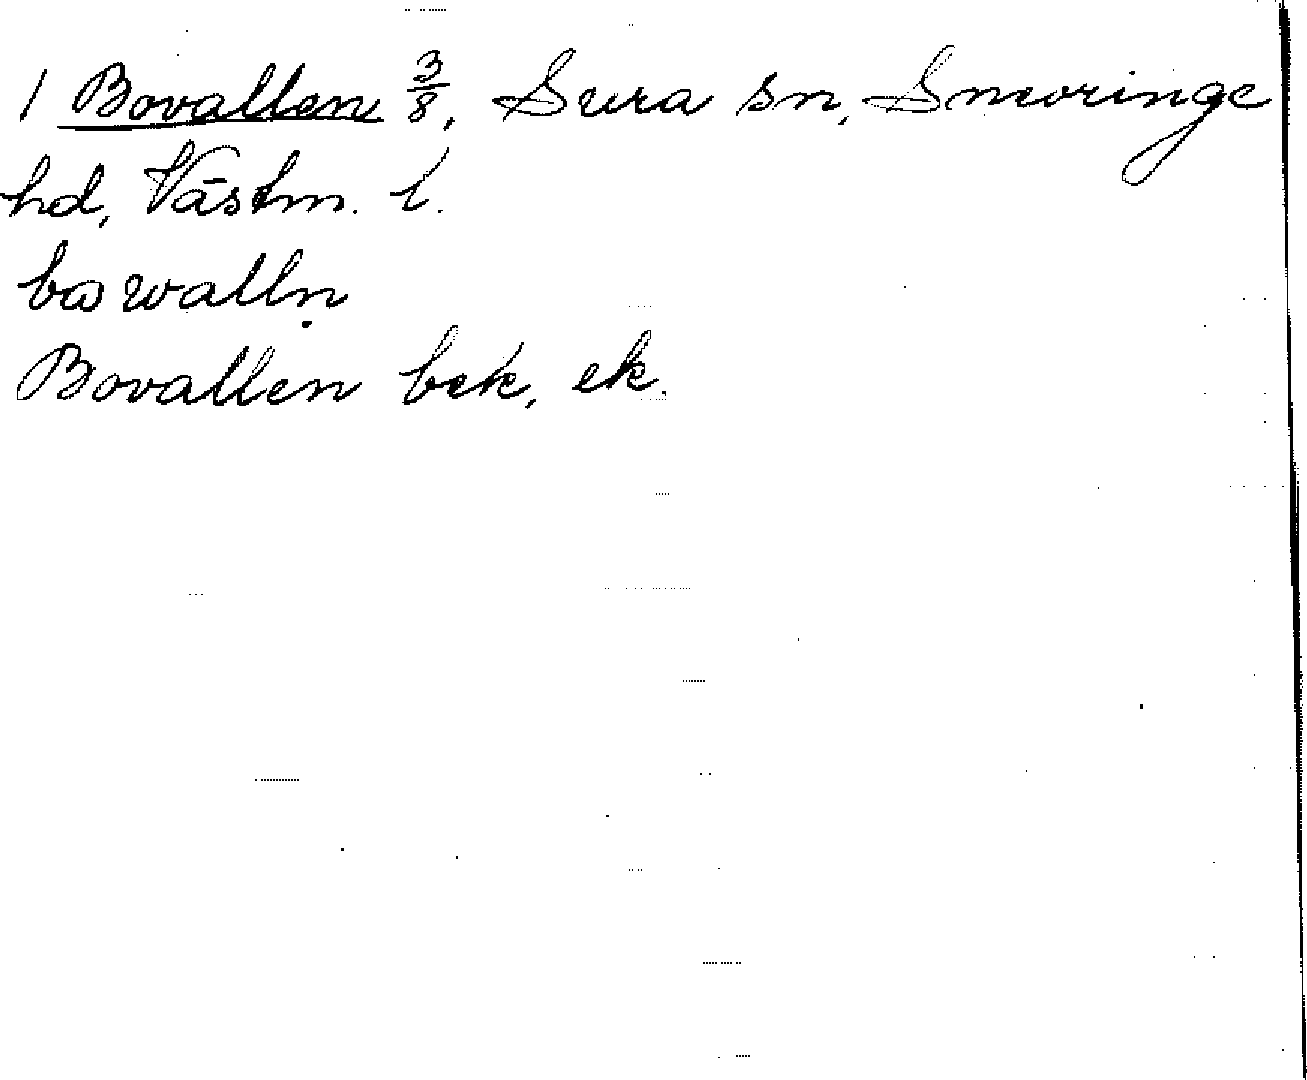 1 Bovallen 3/8, Sura sn, Snevringe
hd, Västm. l.
bωvalln̥
Bovallen bek, ek.